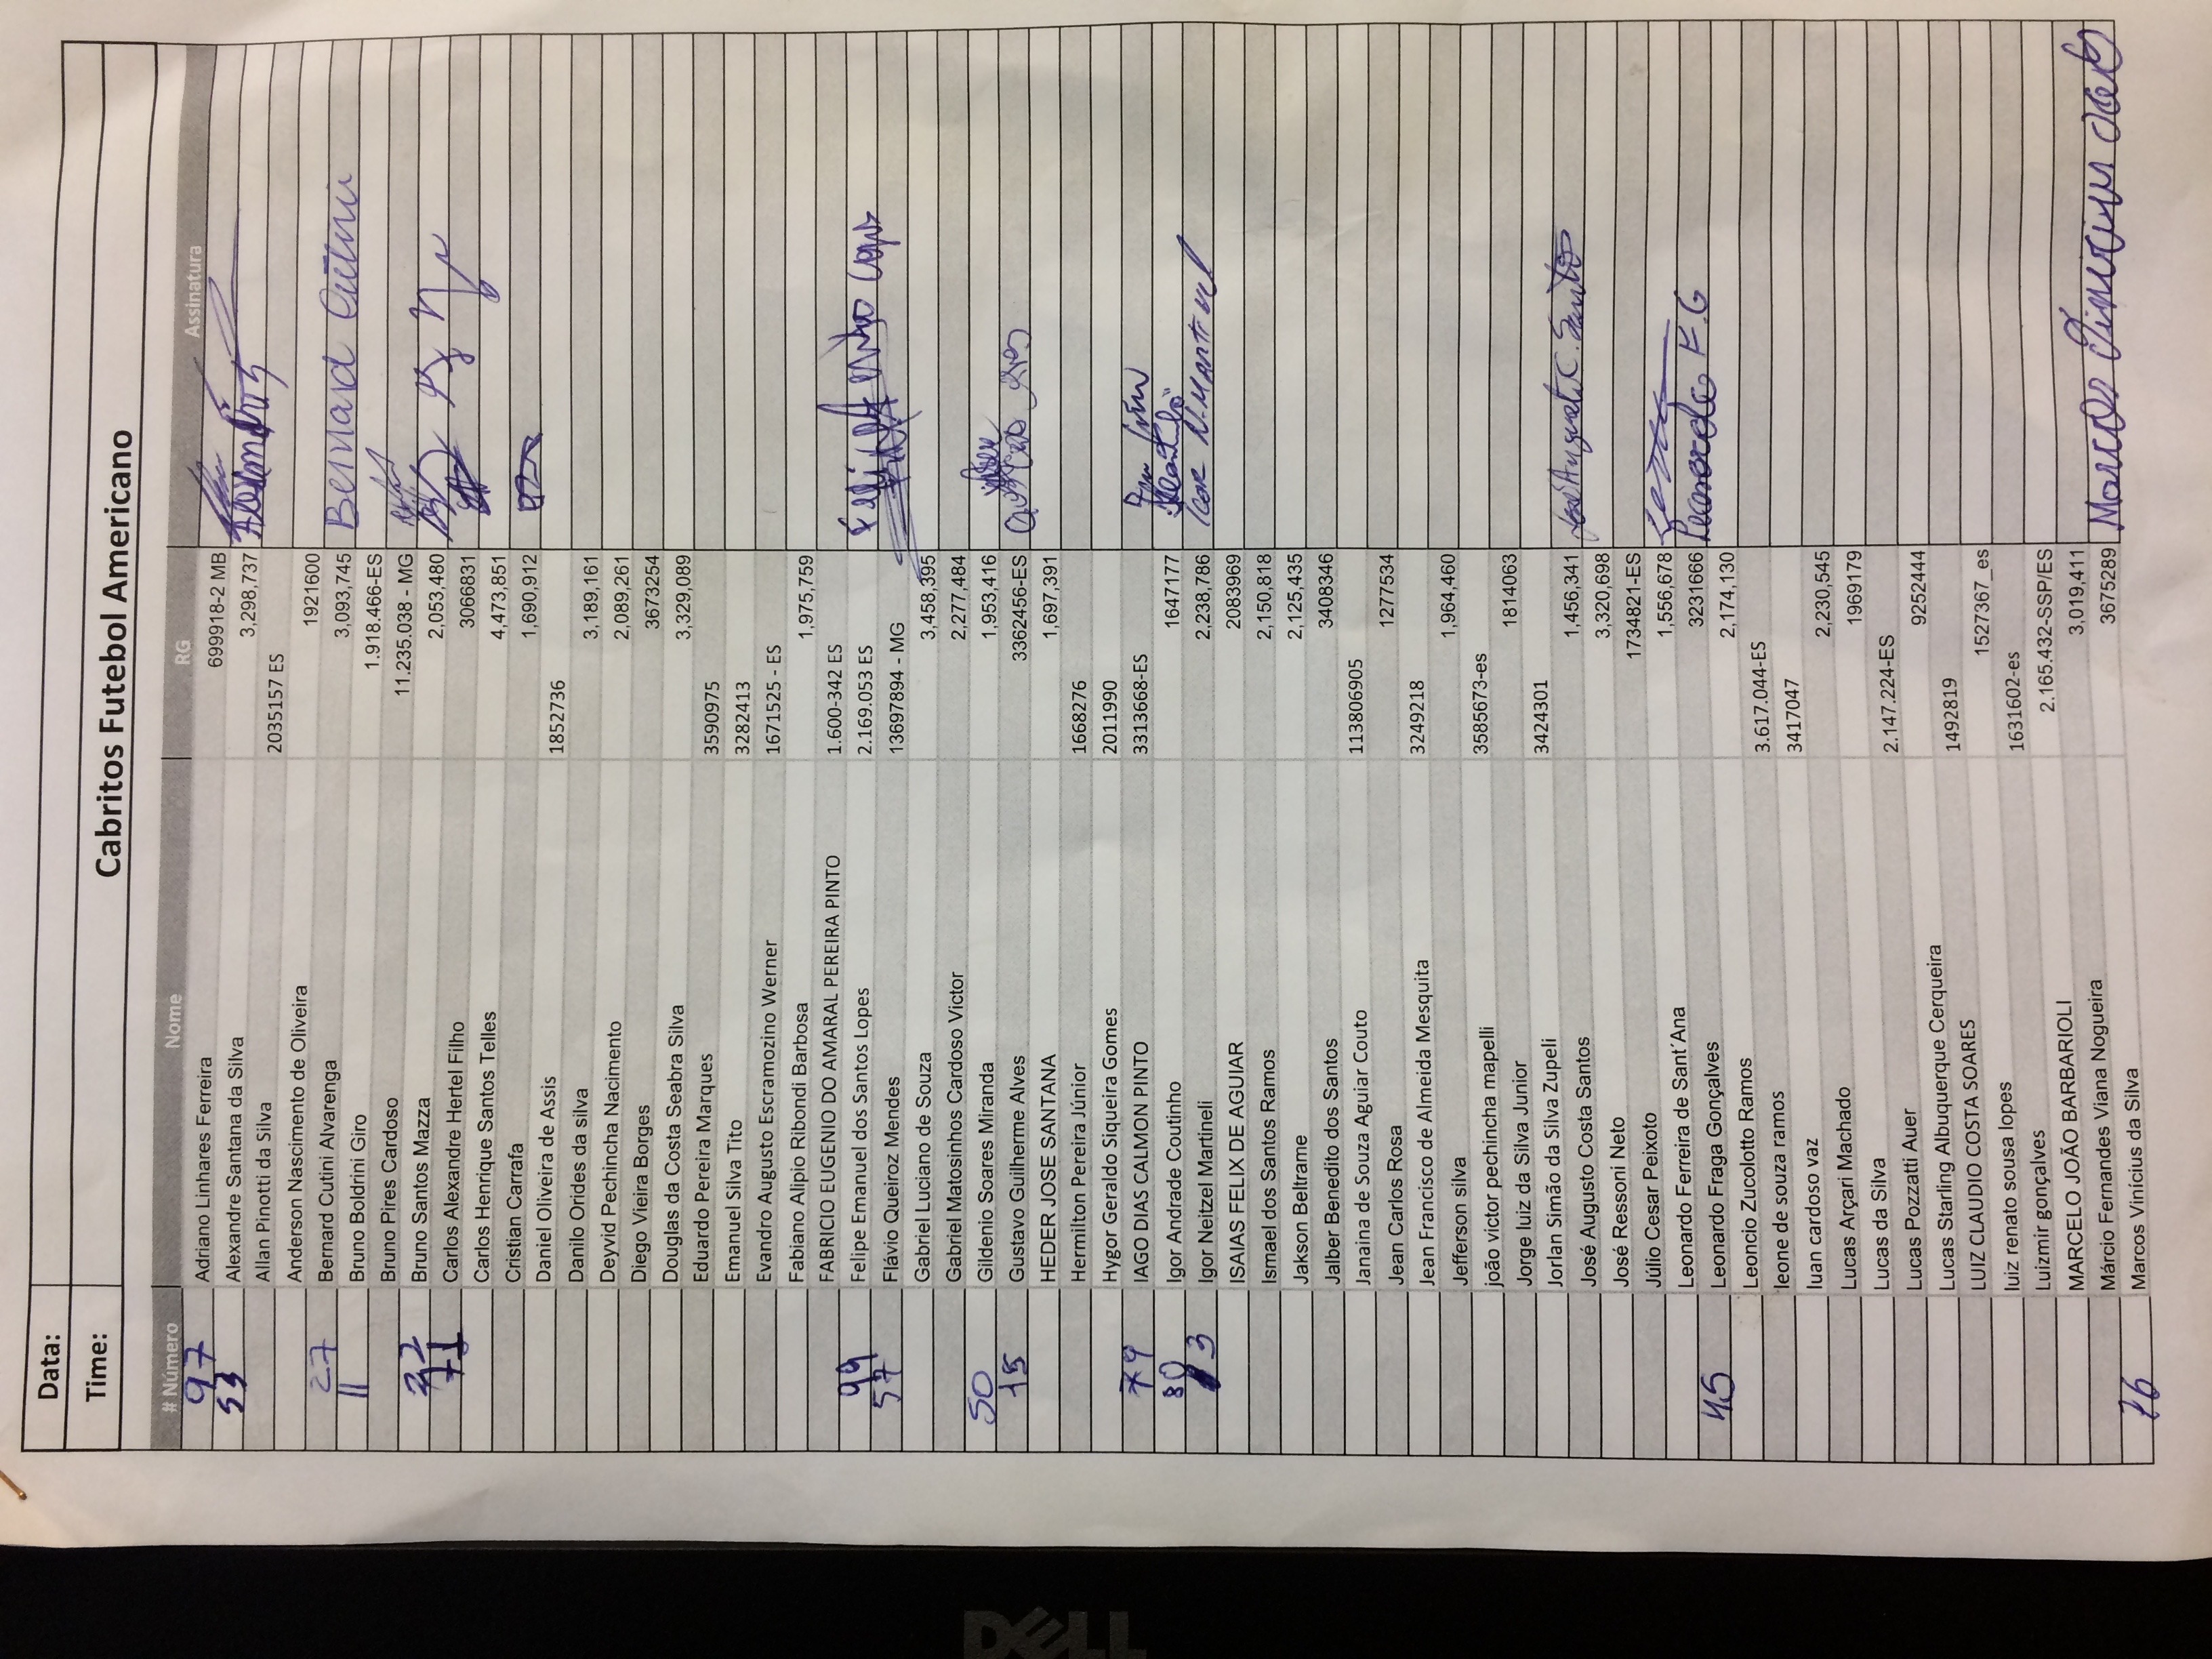 Data:
Time:
Cabritos Futebol Americano
# Número Nome RG Assinatura
97 Adriano Linhares Ferreira 699918-2 MB
53 Alexandre Santana da Silva 3,298,737
Allan Pinotti da Silva 2035157 ES
Anderson Nascimento de Oliveira 1921600
27 Bernard Cutini Alvarenga 3,093,745 Bernard Cutini
11 Bruno Boldrini Giro 1.918.466-ES
Bruno Pires Cardoso 11.235.038 - MG
32 Bruno Santos Mazza 2,053,480
71 Carlos Alexandre Hertel Filho 3066831
Carlos Henrique Santos Telles 4,473,851
Cristian Carrafa 1,690,912
Daniel Oliveira de Assis 1852736
Danilo Orides da silva 3,189,161
Deyvid Pechincha Nacimento 2,089,261
Diego Vieira Borges 3673254
Douglas da Costa Seabra Silva 3,329,089
Eduardo Pereira Marques 3590975
Emanuel Silva Tito 3282413
Evandro Augusto Escramozino Werner 1671525 - ES
Fabiano Alipio Ribondi Barbosa 1,975,759
FABRICIO EUGENIO DO AMARAL PEREIRA PINTO 1.600-342 ES
99 Felipe Emanuel dos Santos Lopes 2.169.053 ES
57 Flávio Queiroz Mendes 13697894 - MG
Gabriel Luciano de Souza 3,458,395
Gabriel Matosinhos Cardoso Victor 2,277,484
50 Gildenio Soares Miranda 1,953,416
15 Gustavo Guilherme Alves 3362456-ES
HEDER JOSE SANTANA 1,697,391
Hermilton Pereira Júnior 1668276
Hygor Geraldo Siqueira Gomes 2011990
79 IAGO DIAS CALMON PINTO 3313668-ES
80 Igor Andrade Coutinho 1647177
13 Igor Neitzel Martineli 2,238,786 Igor N. Martinel
ISAIAS FELIX DE AGUIAR 2083969
Ismael dos Santos Ramos 2,150,818
Jakson Beltrame 2,125,435
Jalber Benedito dos Santos 3408346
Janaina de Souza Aguiar Couto 113806905
Jean Carlos Rosa 1277534
Jean Francisco de Almeida Mesquita 3249218
Jefferson silva 1,964,460
joão victor pechincha mapelli 3585573-es
Jorge luiz da Silva Junior 1814063
Jorlan Simão da Silva Zupeli 3424301
José Augusto Costa Santos 1,456,341 José Augusto C. Santos
José Ressoni Neto 3,320,698
Júlio Cesar Peixoto 1734821-ES
Leonardo Ferreira de Sant´Ana 1,556,678
45 Leonardo Fraga Gonçalves 3231666 Leonardo F.G
Leoncio Zucolotto Ramos 2,174,130
leone de souza ramos 3.617.044-ES
luan cardoso vaz 3417047
Lucas Arçari Machado 2,230,545
Lucas da Silva 1969179
Lucas Pozzatti Auer 2.147.224-ES
Lucas Starling Albuquerque Cerqueira 9252444
LUIZ CLAUDIO COSTA SOARES 1492819
luiz renato sousa lopes 1527367_es
Luizmir gonçalves 1631602-es
MARCELO JOÃO BARBARIOLI 2.165.432-SSP/ES
Márcio Fernandes Viana Nogueira 3,019,411
76 Marcos Vinicius da Silva 3675289 Marcos Vinicius da
DELL